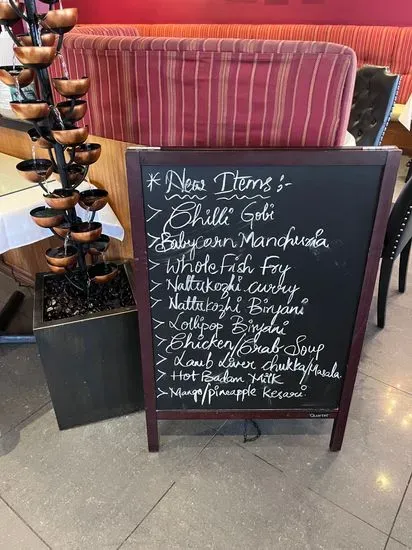 * New Items:-
> Chilli Gobi
> Babycorn Manchuria
> Whole Fish Fry
> Nattukozhi curry
> Nattukozhi Biryani
> Lollipop Biryani
> Chicken/Crab Soup
> Lamb Liver chukka/Masala
> Hot Badam Milk
> Mango/pineapple Kesari
Quartet